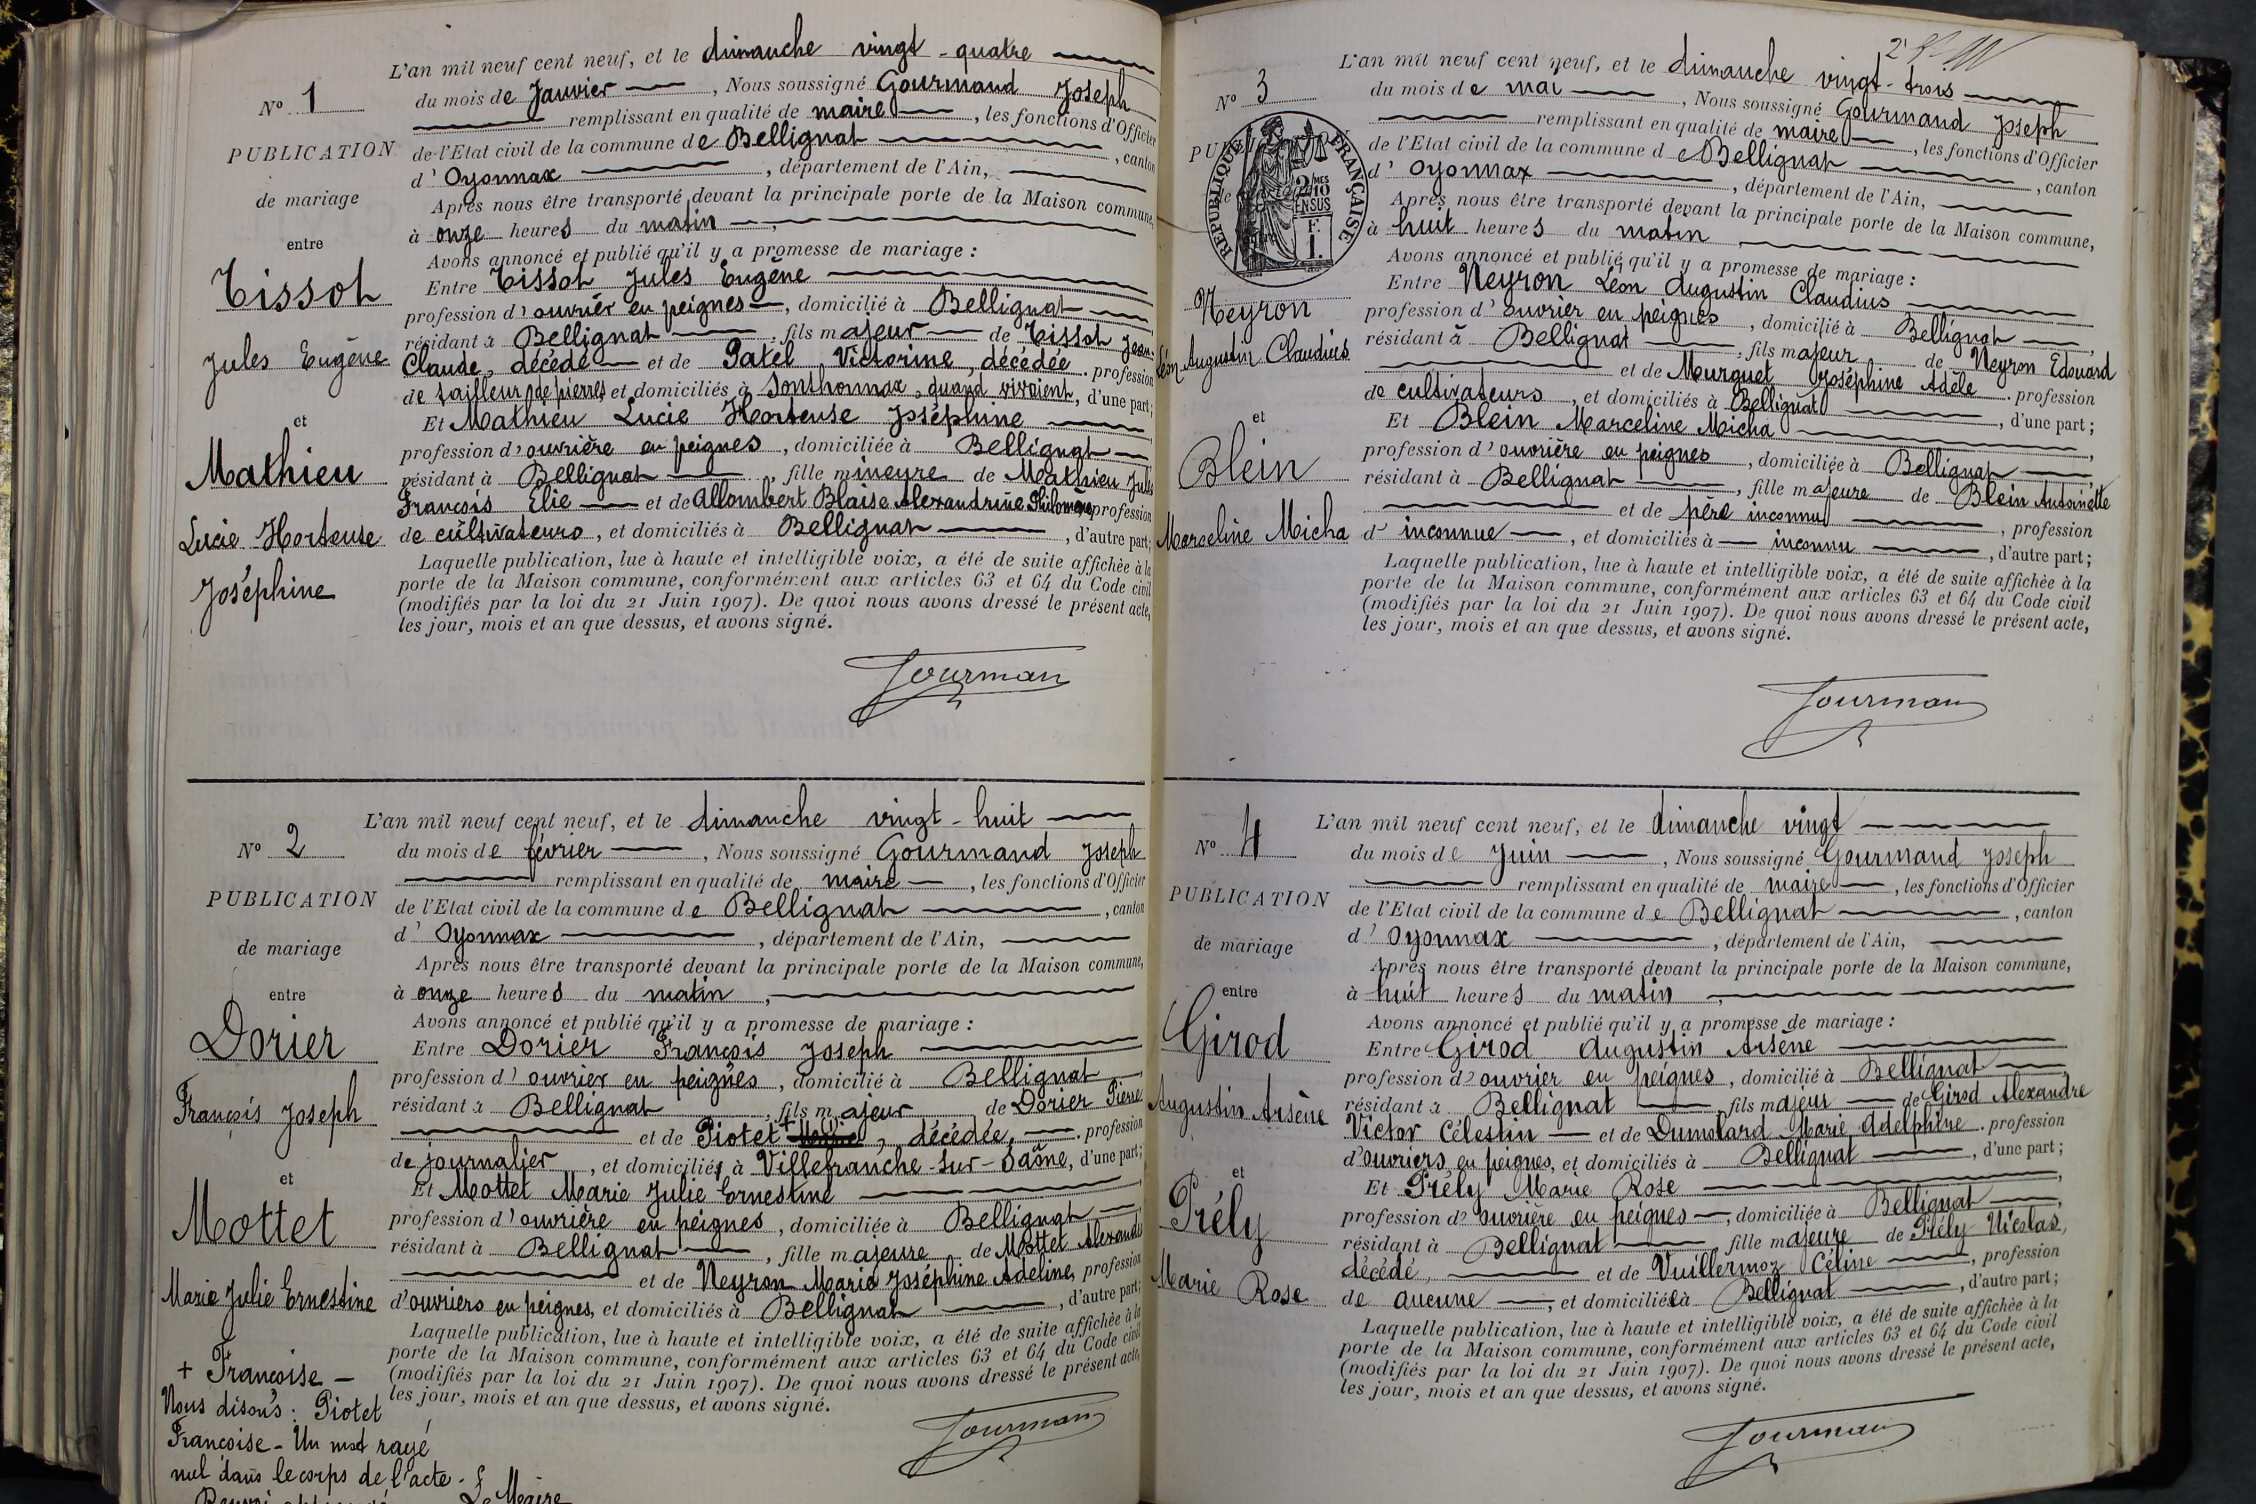 N° 1
PUBLICATION
de mariage
entre
Tissot
Jules Eugène
et
Mathieu
Lucie Hortense
Joséphine
L'an mil neuf cent neuf, et le dimanche vingt-quatre
du mois de Janvier, Nous soussigné Gourmand Joseph
remplissant en qualité de maire, les fonctions d'Officier
de l'Etat civil de la commune de Bellignat, canton
d'Oyonnax, département de l'Ain,
Après nous être transporté devant la principale porte de la Maison commune,
à onze heures du matin,
Avons annoncé et publié qu'il y a promesse de mariage :
Entre Tissot Jules Eugène
profession d'ouvrier en peignes, domicilié à Bellignat
résidant à Bellignat, fils majeur de Tissot Jean-
Claude, décédé et de Patel Victorine, décédée. profession
de tailleur de pierres et domiciliés à Sonthonnax, quand vivaient, d'une part;
Et Mathieu Lucie Hortense Joséphine
profession d'ouvrière en peignes, domiciliée à Bellignat
résidant à Bellignat, fille mineure de Mathieu Jules
François Elie et de Allombert Blaise Alexandrine Philomène, profession
de cultivateurs, et domiciliés à Bellignat, d'autre part;
Laquelle publication, lue à haute et intelligible voix, a été de suite affichée à la
porte de la Maison commune, conformément aux articles 63 et 64 du Code civil
(modifiés par la loi du 21 Juin 1907). De quoi nous avons dressé le présent acte,
les jour, mois et an que dessus, et avons signé.
Gourmand
N° 2
PUBLICATION
de mariage
entre
Dorier
François Joseph
et
Mottet
Marie Julie Ernestine
+ Françoise -
Nous disons : Piotet
Françoise - Un mot rayé
nul dans le corps de l'acte.
Le Maire
L'an mil neuf cent neuf, et le dimanche vingt-huit
du mois de février, Nous soussigné Gourmand Joseph
remplissant en qualité de maire, les fonctions d'Officier
de l'Etat civil de la commune de Bellignat, canton
d'Oyonnax, département de l'Ain,
Après nous être transporté devant la principale porte de la Maison commune,
à onze heures du matin,
Avons annoncé et publié qu'il y a promesse de mariage :
Entre Dorier François Joseph
profession d'ouvrier en peignes, domicilié à Bellignat
résidant à Bellignat, fils majeur de Dorier Pierre
et de Piotet +, décédée, profession
de journalier, et domiciliés à Villefranche-sur-Saône, d'une part;
Et Mottet Marie Julie Ernestine
profession d'ouvrière en peignes, domiciliée à Bellignat
résidant à Bellignat, fille majeure de Mottet Alexandre
et de Neyron Marie Joséphine Adeline, profession
d'ouvriers en peignes, et domiciliés à Bellignat, d'autre part;
Laquelle publication, lue à haute et intelligible voix, a été de suite affichée à la
porte de la Maison commune, conformément aux articles 63 et 64 du Code civil
(modifiés par la loi du 21 Juin 1907). De quoi nous avons dressé le présent acte,
les jour, mois et an que dessus, et avons signé.
Gourmand
N° 3
REPUBLIQUE FRANÇAISE
2/10 MES
EN SUS
F.
1.
Neyron
Léon Augustin Claudius
et
Blein
Marceline Micha
L'an mil neuf cent neuf, et le dimanche vingt-trois
du mois de mai, Nous soussigné Gourmand Joseph
remplissant en qualité de maire, les fonctions d'Officier
de l'Etat civil de la commune de Bellignat, canton
d'Oyonnax, département de l'Ain,
Après nous être transporté devant la principale porte de la Maison commune,
à huit heures du matin
Avons annoncé et publié qu'il y a promesse de mariage :
Entre Neyron Léon Augustin Claudius
profession d'ouvrier en peignes, domicilié à Bellignat
résidant à Bellignat, fils majeur de Neyron Edouard
et de Murguet Joséphine Adèle. profession
de cultivateurs, et domiciliés à Bellignat, d'une part;
Et Blein Marceline Micha
profession d'ouvrière en peignes, domiciliée à Bellignat
résidant à Bellignat, fille majeure de Blein Antoinette
et de père inconnu, profession
d'inconnue, et domiciliés à inconnu, d'autre part;
Laquelle publication, lue à haute et intelligible voix, a été de suite affichée à la
porte de la Maison commune, conformément aux articles 63 et 64 du Code civil
(modifiés par la loi du 21 Juin 1907). De quoi nous avons dressé le présent acte,
les jour, mois et an que dessus, et avons signé.
Gourmand
N° 4
PUBLICATION
de mariage
entre
Girod
Augustin Arsène
et
Prély
Marie Rose
L'an mil neuf cent neuf, et le dimanche vingt
du mois de Juin, Nous soussigné Gourmand Joseph
remplissant en qualité de maire, les fonctions d'Officier
de l'Etat civil de la commune de Bellignat, canton
d'Oyonnax, département de l'Ain,
Après nous être transporté devant la principale porte de la Maison commune,
à huit heures du matin,
Avons annoncé et publié qu'il y a promesse de mariage :
Entre Girod Augustin Arsène
profession d'ouvrier en peignes, domicilié à Bellignat
résidant à Bellignat fils majeur de Girod Alexandre
Victor Célestin et de Dumolard Marie Adelphine. profession
d'ouvriers en peignes, et domiciliés à Bellignat, d'une part;
Et Prély Marie Rose
profession d'ouvrière en peignes, domiciliée à Bellignat
résidant à Bellignat, fille majeure de Prély Nicolas,
décédé, et de Vuillermoz Céline, profession
de aucune, et domiciliée à Bellignat, d'autre part;
Laquelle publication, lue à haute et intelligible voix, a été de suite affichée à la
porte de la Maison commune, conformément aux articles 63 et 64 du Code civil
(modifiés par la loi du 21 Juin 1907). De quoi nous avons dressé le présent acte,
les jour, mois et an que dessus, et avons signé.
Gourmand